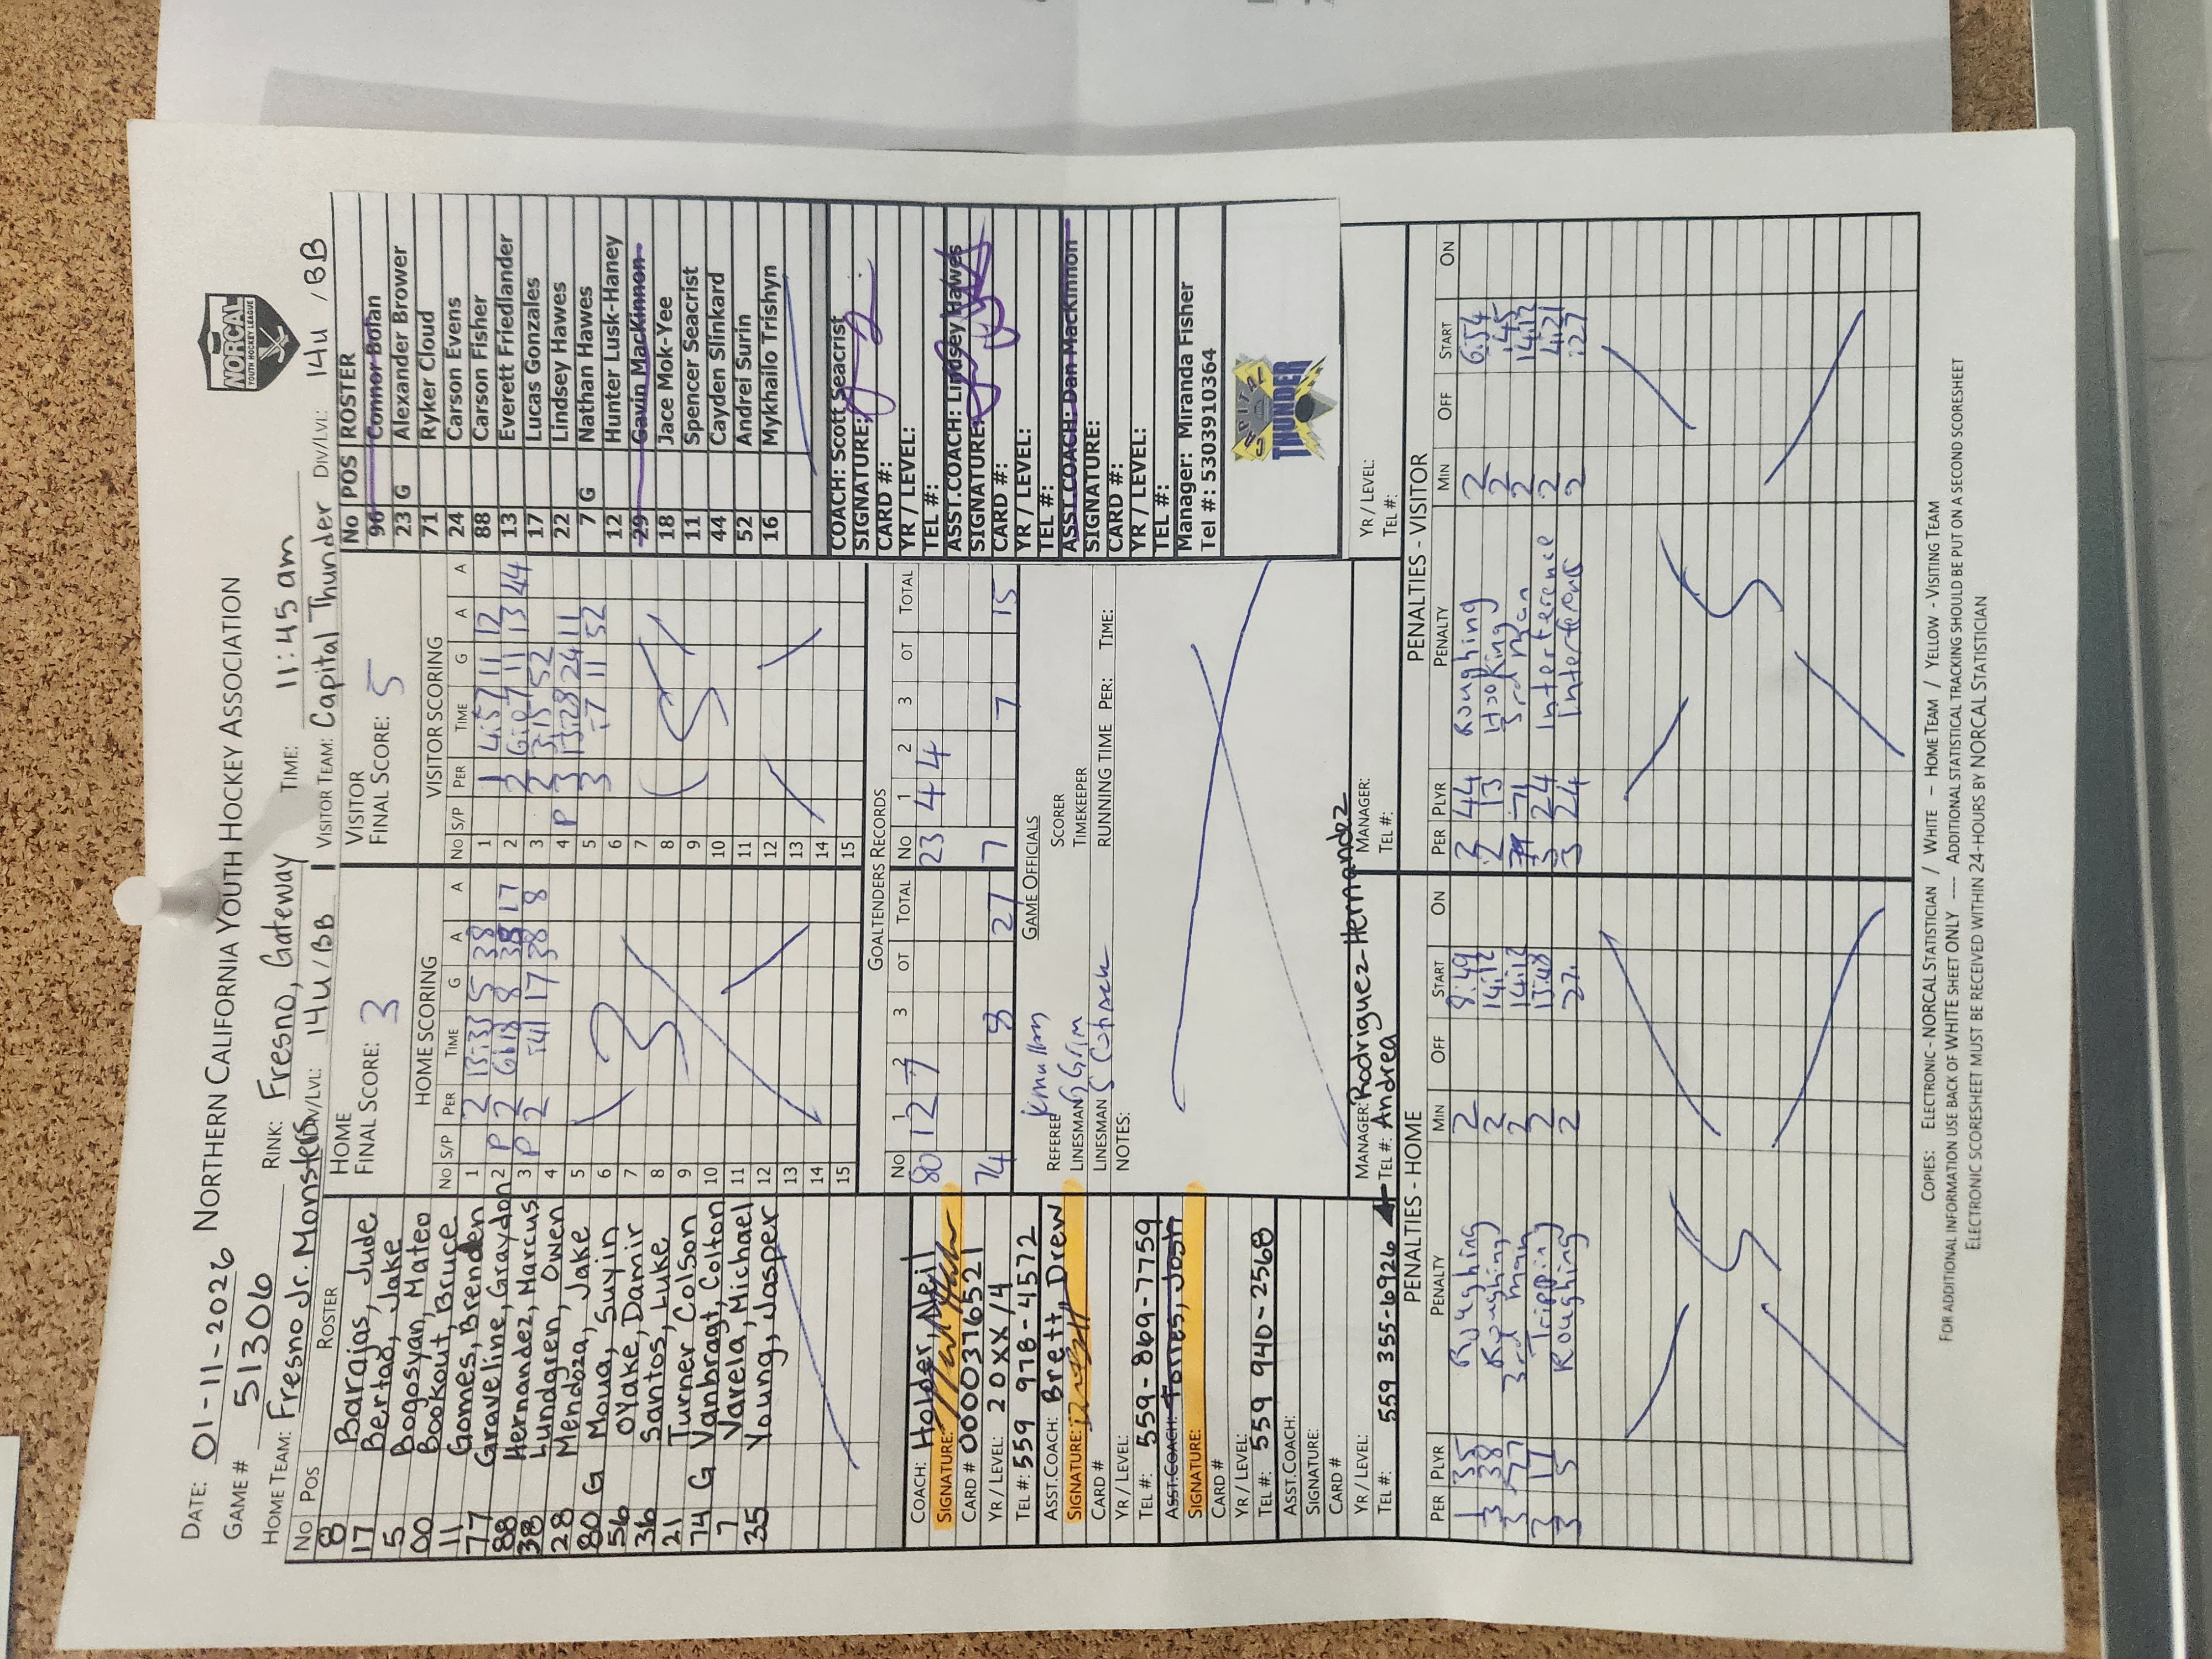 DATE: 01-11-2026 NORTHERN CALIFORNIA YOUTH HOCKEY ASSOCIATION
NORCAL
YOUTH HOCKEY LEAGUE
GAME # 51306 RINK: Fresno, Gateway TIME: 11:45am
HOME TEAM: Fresno Jr. Monsters DIV/LVL: 14u/BB VISITOR TEAM: Capital Thunder DIV/LVL: 14u/BB
No POS ROSTER
8 Barajas, Jude
17 Bertao, Jake
5 Bogosyan, Mateo
00 Bookout, Bruce
11 Gomes, Brenden
77 Graveline, Graydon
88 Hernandez, Marcus
38 Lundgren, Owen
28 Mendoza, Jake
80 G Moua, Suyin
56 Oyake, Damir
36 Santos, Luke
21 Turner, Colson
74 G Vanbragt, Colton
7 Varela, Michael
35 Young, Jasper
HOME
FINAL SCORE: 3
HOME SCORING
No S/P PER TIME G A A
1 2 13:33 5 38
2 P 2 6:18 8 38 17
3 P 2 :41 17 38 8
4
5
6
7
8
9
10
11
12
13
14
15
VISITOR
FINAL SCORE: 5
VISITOR SCORING
No S/P PER TIME G A A
1 1 4:57 11 12
2 2 6:07 11 13 44
3 2 3:15 52
4 P 3 13:28 24 11
5 3 :7 11 52
6
7
8
9
10
11
12
13
14
15
No POS ROSTER
96 Connor Bolan
23 G Alexander Brower
71 Ryker Cloud
24 Carson Evens
88 Carson Fisher
13 Everett Friedlander
17 Lucas Gonzales
22 Lindsey Hawes
7 G Nathan Hawes
12 Hunter Lusk-Haney
29 Gavin MacKinnon
18 Jace Mok-Yee
11 Spencer Seacrist
44 Cayden Slinkard
52 Andrei Surin
16 Mykhailo Trishyn
COACH: Holder, Neil
SIGNATURE:
CARD # 0000376521
YR / LEVEL: 20XX/4
TEL #: 559 978-4572
ASST.COACH: Brett, Drew
SIGNATURE:
CARD #
YR / LEVEL:
TEL #: 559-869-7759
ASST.COACH: Torres, Josh
SIGNATURE:
CARD #
YR / LEVEL:
TEL #: 559 940-2568
ASST.COACH:
SIGNATURE:
CARD #
YR / LEVEL:
TEL #: 559 355-6926
GOALTENDERS RECORDS
No 1 2 3 OT TOTAL No 1 2 3 OT TOTAL
80 12 7 23 4 4
74 8 27 7 7 15
GAME OFFICIALS
REFEREE SCORER
LINESMAN Grim TIMEKEEPER
LINESMAN RUNNING TIME PER: TIME:
NOTES:
MANAGER: Rodriguez-Hernandez
TEL #: Andrea
MANAGER:
TEL #:
COACH: Scott Seacrist
SIGNATURE:
CARD #:
YR / LEVEL:
TEL #:
ASST.COACH: Lindsey Hawes
SIGNATURE:
CARD #:
YR / LEVEL:
TEL #:
ASST.COACH: Dan MacKinnon
SIGNATURE:
CARD #:
YR / LEVEL:
TEL #:
Manager: Miranda Fisher
Tel #: 5303910364
CAPITAL
THUNDER
YR / LEVEL:
TEL #:
PENALTIES - HOME
PER PLYR PENALTY MIN OFF START ON
1 35 Roughing 2 8:49
3 38 Roughing 2 14:12
3 77 3rd man 2 14:12
3 17 Tripping 2 13:48
3 5 Roughing 2 27.
PENALTIES - VISITOR
PER PLYR PENALTY MIN OFF START ON
2 44 Roughing 2 6:54
2 13 Hooking 2 1:45
71 3rd man 2 14:12
3 24 Interference 2 4:21
3 24 Interference 2 :27
COPIES: ELECTRONIC - NORCAL STATISTICIAN / WHITE – HOME TEAM / YELLOW - VISITING TEAM
FOR ADDITIONAL INFORMATION USE BACK OF WHITE SHEET ONLY ---- ADDITIONAL STATISTICAL TRACKING SHOULD BE PUT ON A SECOND SCORESHEET
ELECTRONIC SCORESHEET MUST BE RECEIVED WITHIN 24-HOURS BY NORCAL STATISTICIAN